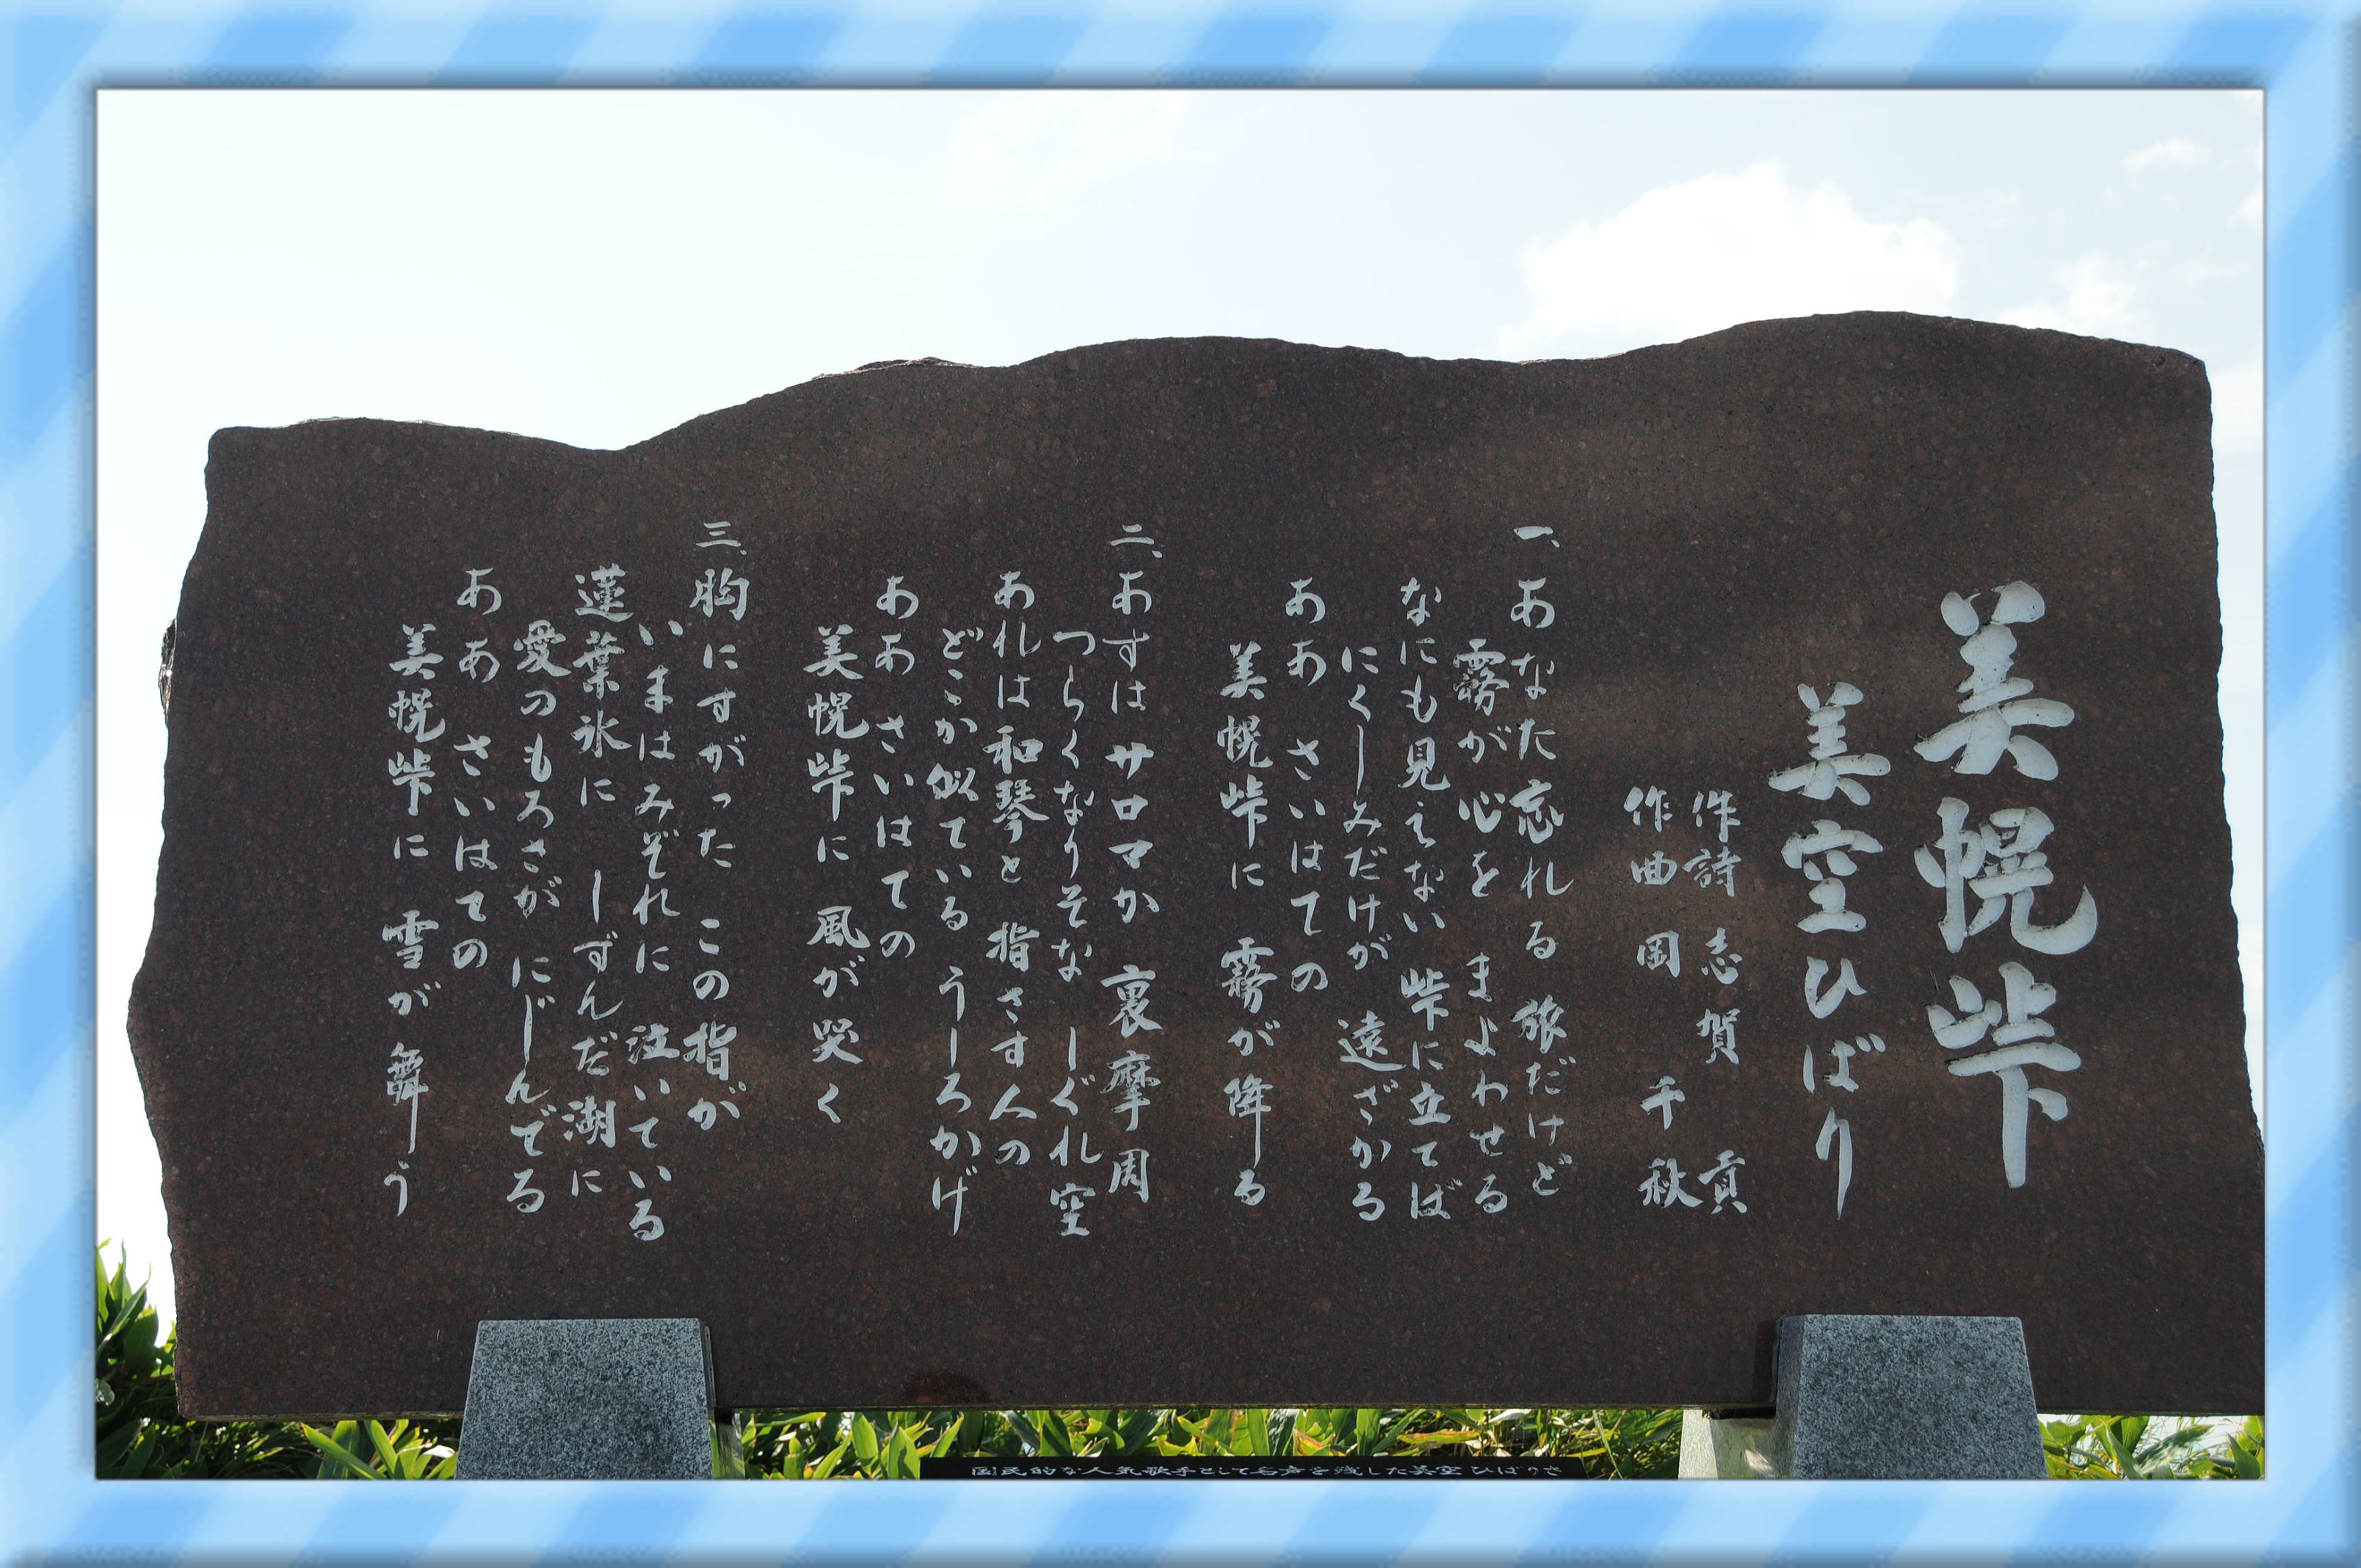 美幌峠
美空ひばり
作詩 志賀 貢
作曲 岡 千秋
一、あなた忘れる 旅だけど
霧が心を まよわせる
なにも見えない 峠に立てば
にくしみだけが 遠ざかる
ああ さいはての
美幌峠に 霧が降る
二、あすは サロマか 裏摩周
つらくなりそな しぐれ空
あれは和琴と 指さす人の
どこか似ている うしろかげ
ああ さいはての
美幌峠に 風が哭く
三、胸にすがった この指が
いまはみぞれに 泣いている
蓮葉氷に しずんだ湖に
愛のもろさが にじんでる
ああ さいはての
美幌峠に 雪が舞う
国民的な人気歌手として名声を残した美空ひばりさ